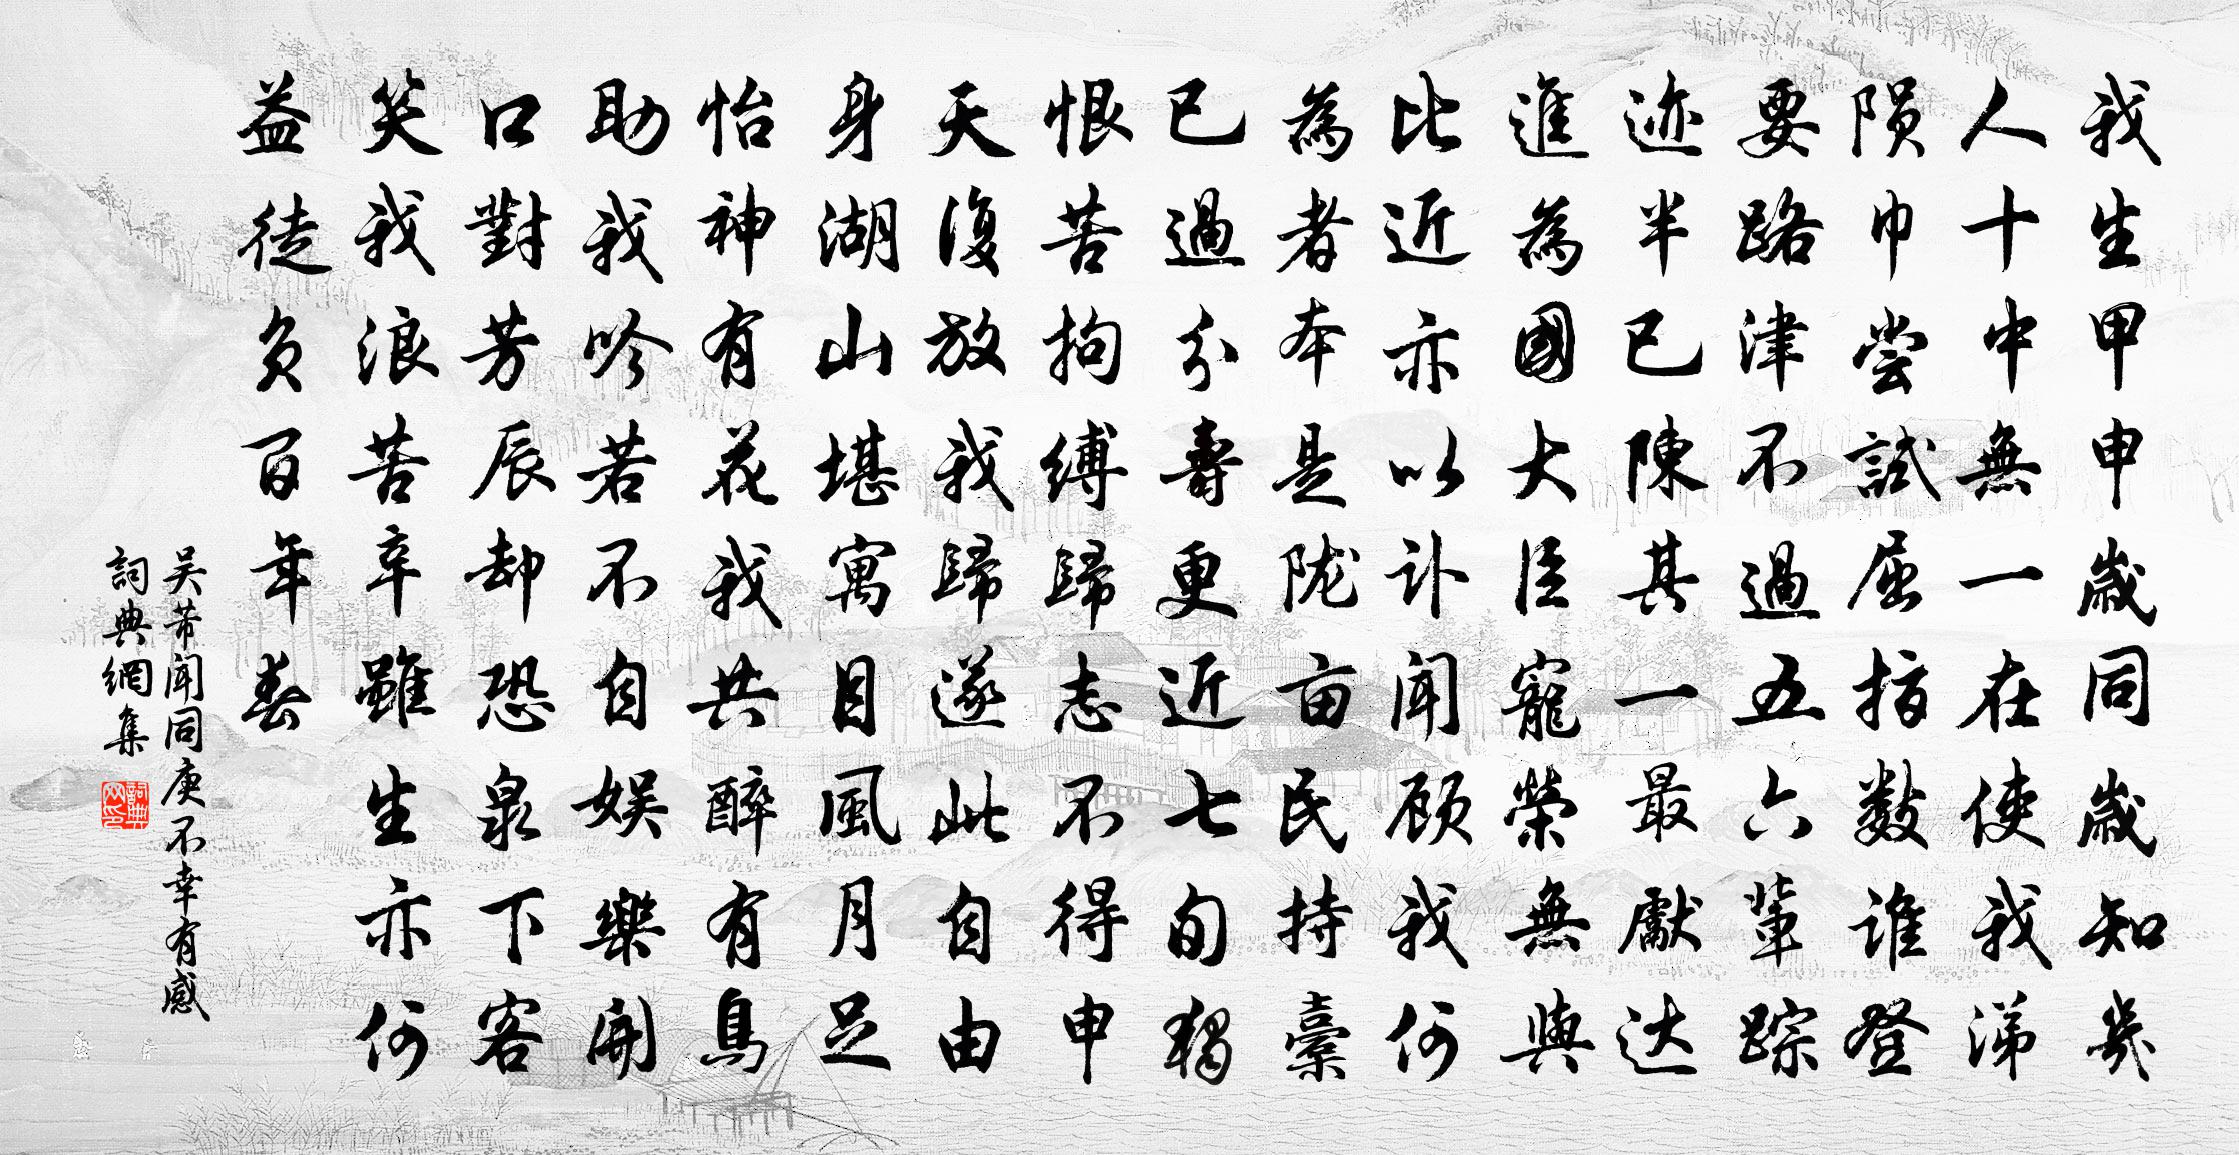 我生甲申歲同歲知幾
人十中無一在使我涕
陨巾尝試屈指数谁登
要路津不過五六輩踪
迹半已陳其一最獻达
進為國大臣寵榮無與
比近亦以讣闻顾我何
為者本是陇亩民持橐
已過分壽更近七旬猶
恨苦拘缚歸志不得申
天復放我歸遂此自由
身湖山堪寓目風月足
怡神有花我共醉有鳥
助我吟若不自娱樂開
口對芳辰却恐泉下客
笑我浪苦辛雖生亦何
益徒负百年春
吴芾闻同庚不幸有感
詞典網集
詞典网印